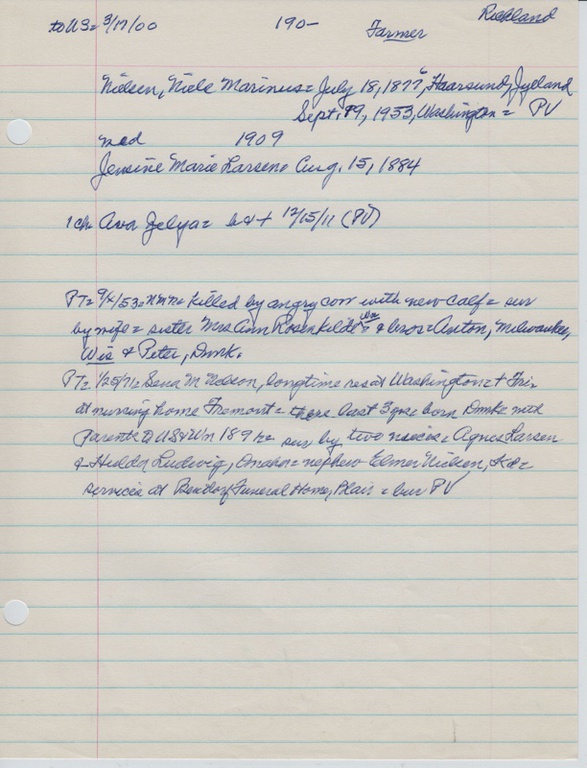 Richland
to US = 3/17/00 190- Farmer
Nielsen, Niels Marinus = July 18, 1877, Haarsund, Jylland
Sept. 19, 1953, Washington = PV
md 1909
Jensine Marie Larsen = Aug. 15, 1884
1 ch. Ava = b & d 12/15/11 (PV)
PT = 9/4/53 = killed by angry cow with new calf = sur
by wife = sister Mrs Ann Rosenkilde & bros = Anton, Milwaukee,
Wis & Peter, Dmk.
PT = 1/25/71 = Sena M Nelson, longtime res at Washington + Fri.
at nursing home Fremont = there last 3 yrs = born Dmk =
Parents to US = sur by two nieces = Agnes Larsen
& Hilda Ludwig, Omaha = nephew Elmer Nielsen,
Services at Funeral Home, Blair = bur PV